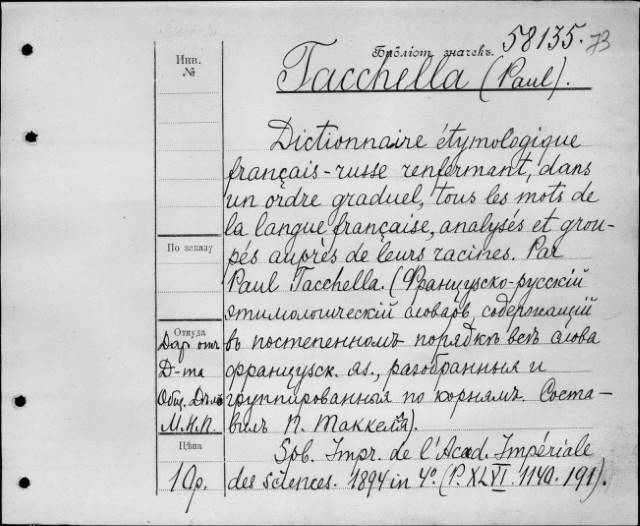 Библіот. значекъ. 58135. 73
Инв.
№
Tacchella (Paul).
Dictionnaire étymologique
français-russe renfermant, dans
un ordre graduel, tous les mots de
la langue française, analysés et grou-
pés auprès de leurs racines. Par
По заказу
Paul Tacchella. (Французско-русскій
этимологическій словарь, содержащій
Откуда
въ постепенномъ порядкѣ всѣ слова
Даръ отъ
французск. яз., разобранныя и
Д-та
группированныя по корнямъ. Соста-
Общ. Дѣлъ
вилъ П. Таккелла).
М.Н.П.
Цѣна
Spb. Impr. de l'Acad. Impériale
des sciences. 1894 in 4º. (P. XLVI. 1140. 191).
10р.